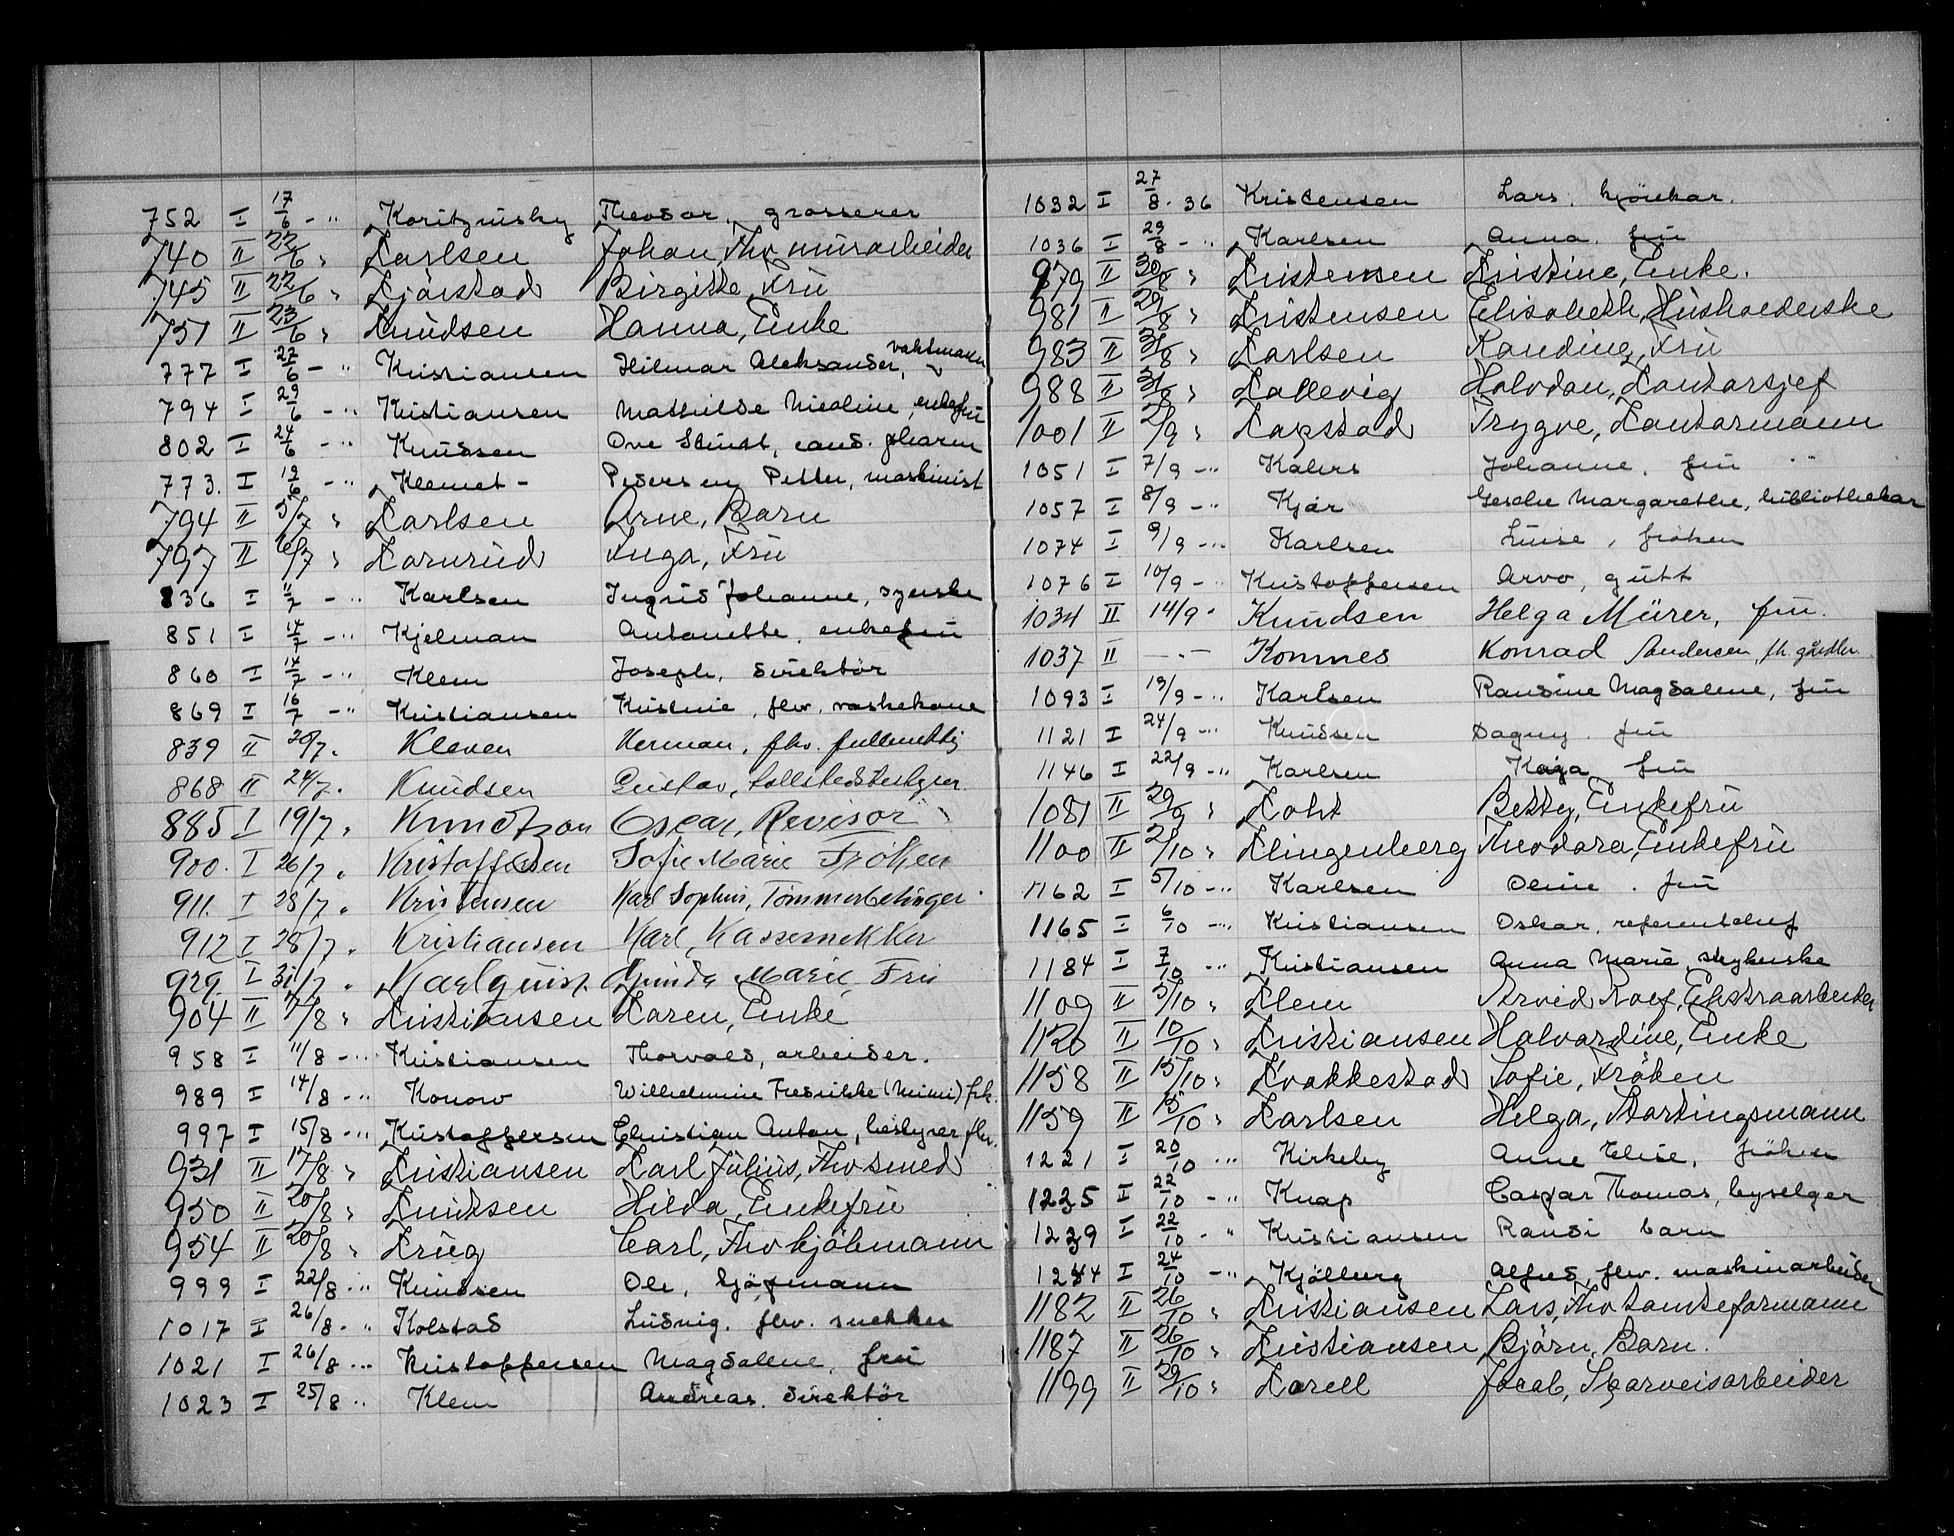 752 I 17/6 - " Koritzinsky Theodor, grosserer
740 II 22/6 " Karlsen Johan, Fhv murarbeider
745 II 22/6 " Kjörstad Birgitte, Fru
751 II 23/6 " Knudsen Hanna, Enke
777 I 27/6 - " Kristiansen Hilmar Aleksander, vaktmann
794 I 29/6 - " Kristiansen Mathilde Nicoline, enkefru
802 I 24/6 - " Knudsen Ove, cand. pharm
773. I 19/6 - " Klemet - Pedersen Petter, maskinist
794 II 5/7 " Karlsen Arne, Barn
797 II 6/7 " Kornrud Inga, Fru
836 I 11/7 - " Karlsen Ingrid Johanne, syerske
851 I 14/7 - " Kjelman Antonette, enkefru
860 I 14/7 - " Klem Joseph, direktör
869 I 16/7 - " Kristiansen Kristine, fhv. vaskekone
839 II 20/7. Kleven Herman, fhv. fullmektig
868 II 24/7. Knudsen Gustav, tollstedsbestyrer
885 I 19/7 " Knudtzon Oscar, Revisor
900. I 26/7 " Kristoffersen Sofie Marie Frøken
911. I 28/7 " Kristensen Karl Sophus, Tömmerbetinger
912 I 28/7 " Kristiansen Karl, Kassemekker
929 I 31/7 " Karlquist Gunda Marie, Fru
904 II 7/8 " Kristiansen Karen, Enke
958 I 11/8 - " Kristiansen Thorvald, arbeider.
989 I 14/8 - " Konow Wilhelmine Fredrikke (Mimi) frk.
997 I 15/8 - " Kristoffersen Christian Anton, bestyrer fhv.
931 II 17/8 " Kristiansen Karl Julius, Fhv smed
950 II 20/8 " Knudsen Hilda, Enkefru
954 II 20/8 " Krieg Carl, Fhv kjöbmann
999 I 22/8 - " Knudsen Ole, sjömann
1017 I 26/8 - " Kolstad Ludvig, fhv. snekker
1021 I 26/8 - " Kristoffersen Magdalene, fru
1023 I 25/8 " Klem Andreas, direktör
1032 I 27/8 - 36 Kristensen Lars, kjörekar.
1036 I 29/8 - " Karlsen Anna, fru
979 II 30/8 " Kristensen Kristine, Enke.
981 II 29/8 " Kristensen Elisabeth, Husholderske
983 II 31/8 " Karlsen Randine, Fru
988 II 31/8 " Kallevig Halvdan, Kontorsjef
1001 II 2/9 " Kapstad Trygve, Kontormann
1051 I 7/9 - " Kahrs Johanne, fru
1057 I 8/9 - " Kjær Gesche Margarethe, bibliothekar
1074 I 9/9 - " Karlsen Luise, fröken
1076 I 10/9 - " Kristoffersen Arvo, gutt
1034 II 14/9 " Knudsen Helga Mürer, fru.
1037 II - " - Kommes Konrad Andersen, fh. gårdbr.
1093 I 19/9 - " Karlsen Randine Magdalene, fru
1121 I 24/9 - " Knudsen Dagny, fru
1146 I 22/9 - " Karlsen Kaja fru
1081 II 29/9 " Koht Betty, Enkefru
1100 II 2/10 " Klingenberg Theodora, Enkefru
1162 I 5/10 - " Karlsen Oline, fru
1165 I 6/10 - " Kristiansen Oskar, referentchef
1184 I 7/10 " Kristiansen Anna Marie, strykerske
1109 II 5/10 " Klem Arvid Rolf, Ekstraarbeider
1120 II 10/10 " Kristiansen Halvardine, Enke
1158 II 15/10 " Krakkestad Sofie, Fröken
1159 II 15/10 " Karlsen Helga, Stortingsmann
1221 I 20/10 " Kirkeby Anne Elise, fröken
1225 I 22/10 - " Knap Caspar Thomas, byselger
1239 I 22/10 - " Kristiansen Randi barn
1244 I 24/10 - " Kjölberg Alfred, fhv. maskinarbeider
1182 II 26/10 " Kristiansen Lars, Fhv tomteformann
1187 II 26/10 " Kristiansen Björn, Barn.
1199 II 29/10 " Korell Jacob, Sporveisarbeider